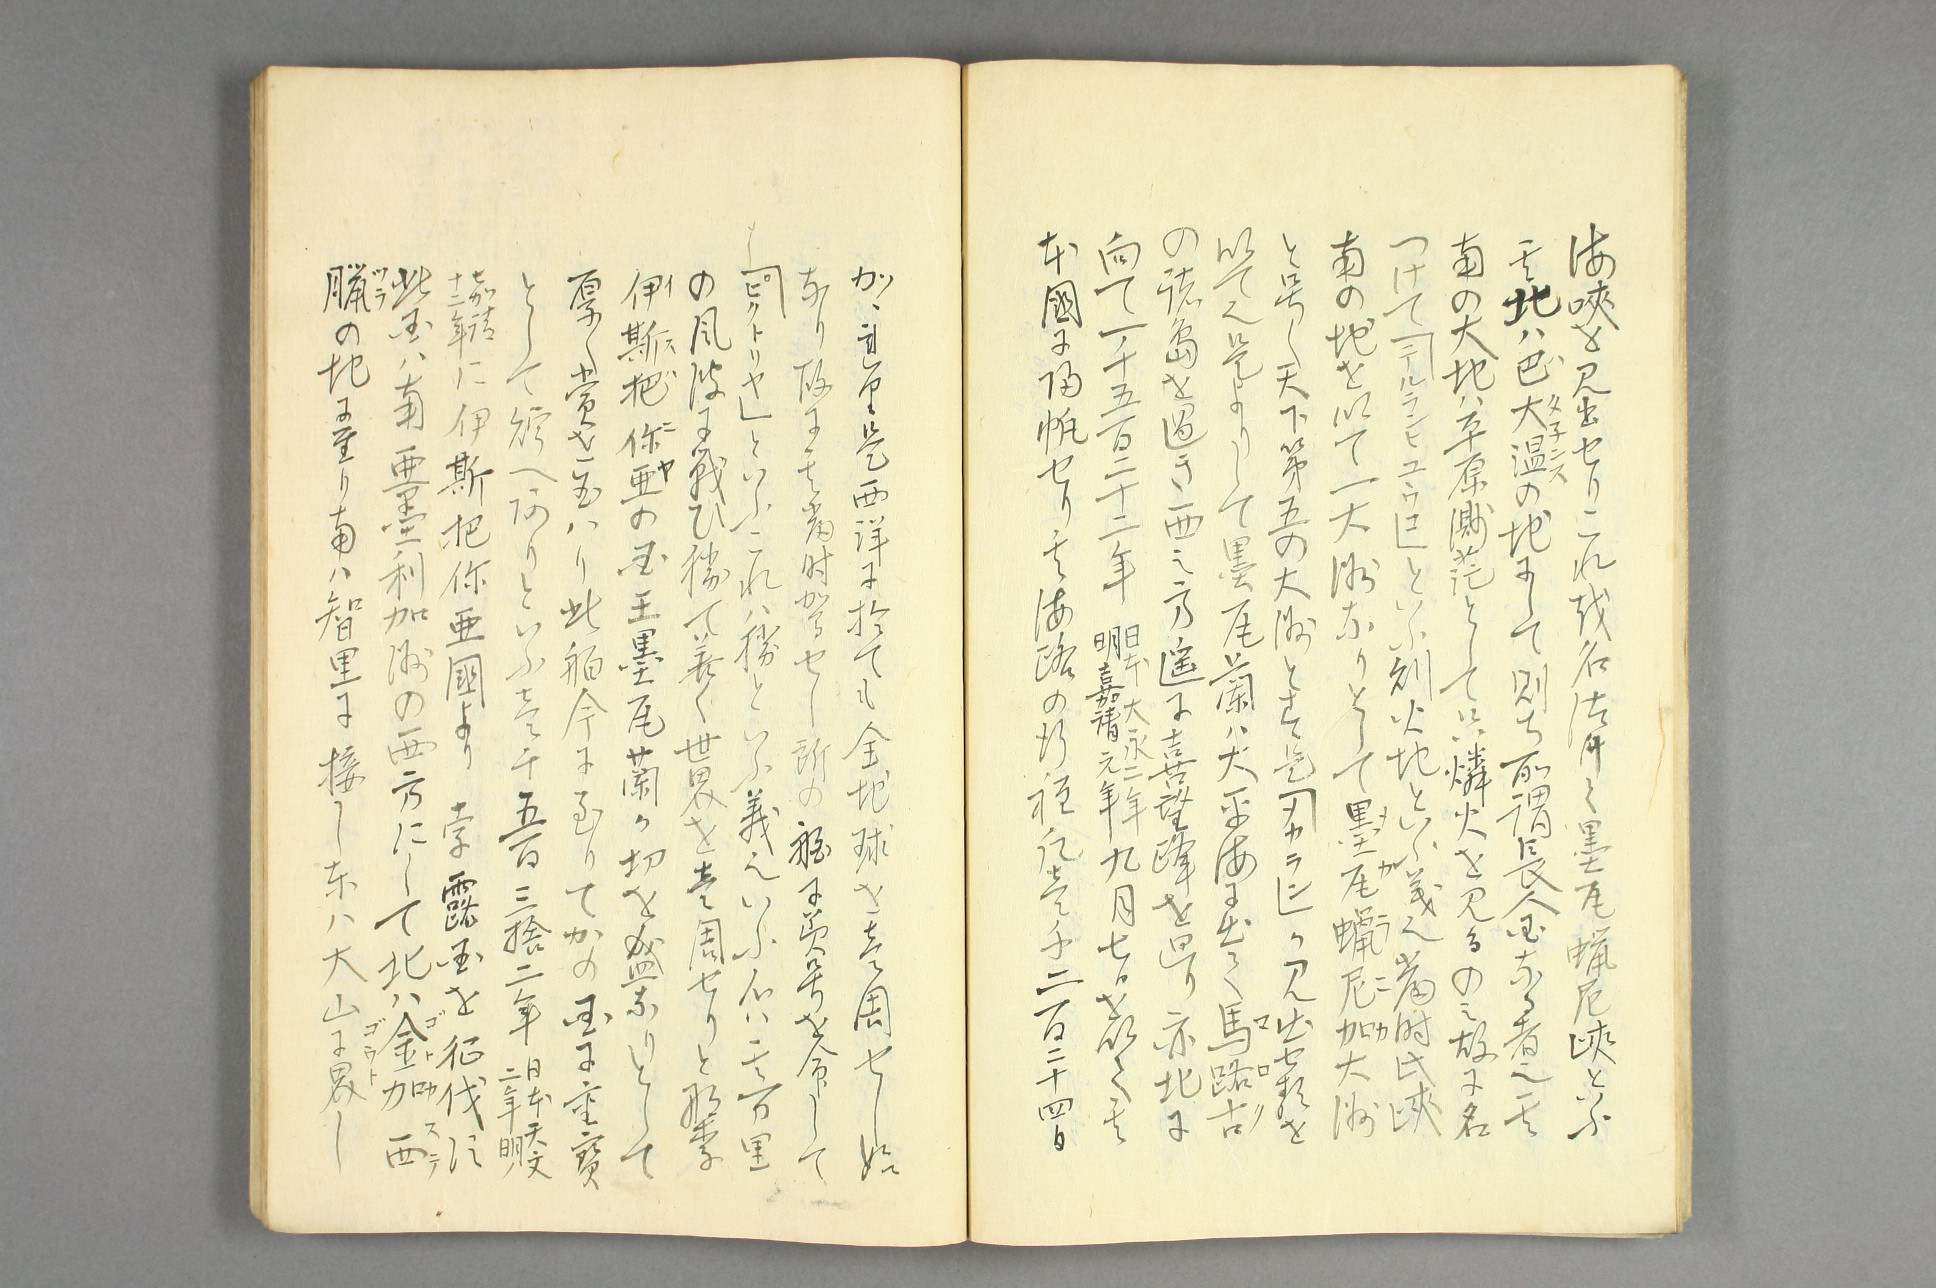 海峽を見出セリこれ越名法け墨瓦蝋尼峽といふ
其北ハ巴大温の地にして則ち所謂長人国なる者也其
南の大地ハ平原渺茫として只燐火を見るのミ故に名
つけて「テルランヒユウロ」といふ則火地といふ義也当時此峽
南の地を以て一大洲なりとして墨瓦蠟尼加大洲
と号し天下第五の大洲とす是「マカラン」か見出セ類を
以て也是よりして墨瓦蘭ハ大平海に出て馬路古
の諸島を過き西之方遥に喜望峰を廻り亦北に
向て一千五百二十二年 日本大永二年 明嘉靖元年 九月七日を以て其
本國に帰帆セり其海路の行程凡壱千二百二十四日
か是西洋に於ても全地球を壱周セし始
なり故に其当時駕セし所の船に美号を命して
「ピクトリヤ」といふこれハ勝といふ義也いふ心ハ其万里
の風波に戦ひ勝て善く世界を壱周セりと形季
伊斯把你亜の国王墨瓦蘭か切を盛なりとして
厚く賞を賜ハり此船今に至りてかの国に重寶
として残へ
ありといふ壱千五百三拾二年 日本天文二年明ノ
嘉靖十二年に伊斯把你亜國より孛露国を征伐に
此国ハ南亜墨利加洲の西方にして北ハ金加西
臘の地に至り南ハ智里に接し東ハ大山に界し